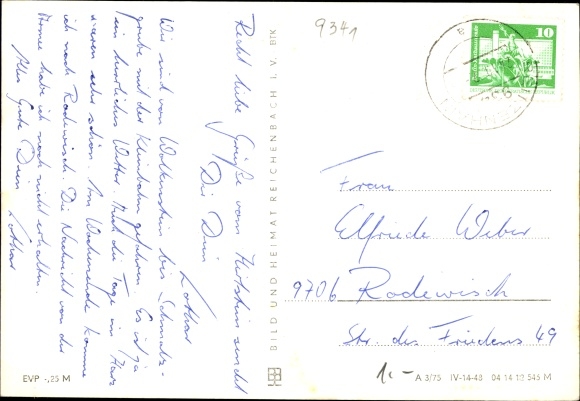 Recht liebe Grüße vom sendet
Dir Dein
Lothar
Wir sind von Wolkenstein bis
mit der Kleinbahn gefahren. Es ist ja
ein herrliches Wetter. Auch die Tage im Harz
waren sehr schön. Am Wochenende komme
ich nach Rodewisch. Die Nachricht von der
habe ich noch nicht erhalten.
Alles Gute Dein
Lothar
EVP -,25 M
BILD UND HEIMAT REICHENBACH I. V. BfK
9341
10
Frau
Elfriede Weber
9706 Rodewisch
Str. des Friedens 49
1.-
A 3/75 IV-14-48 04 14 12 545 M